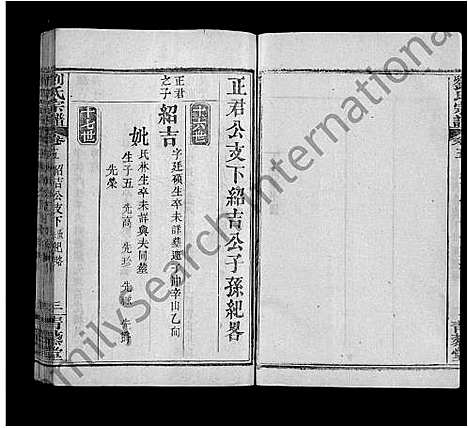 正君公支下紹吉公子孫紀畧
十六世
正君之子
紹吉
字廷碩生卒未詳墓
山乙向
妣
氏林生卒未詳與夫同墓
生子五 先高 先珍 先爵
先榮
十七世
劉氏宗譜
卷五 紹吉公支下 紀略
三 青藜堂
劉氏宗譜
青藜堂
FamilySearch International